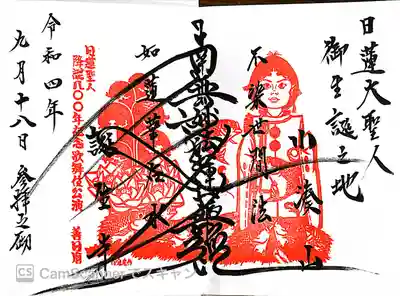 日蓮大聖人
御生誕之地
小湊山
不染世間法
南無妙法蓮華経
如蓮華在水
誕生寺
日蓮聖人
降誕八〇〇年記念歌舞伎公演
令和四年
九月十八日 参拝之砌
CS CamScannerでスキャン